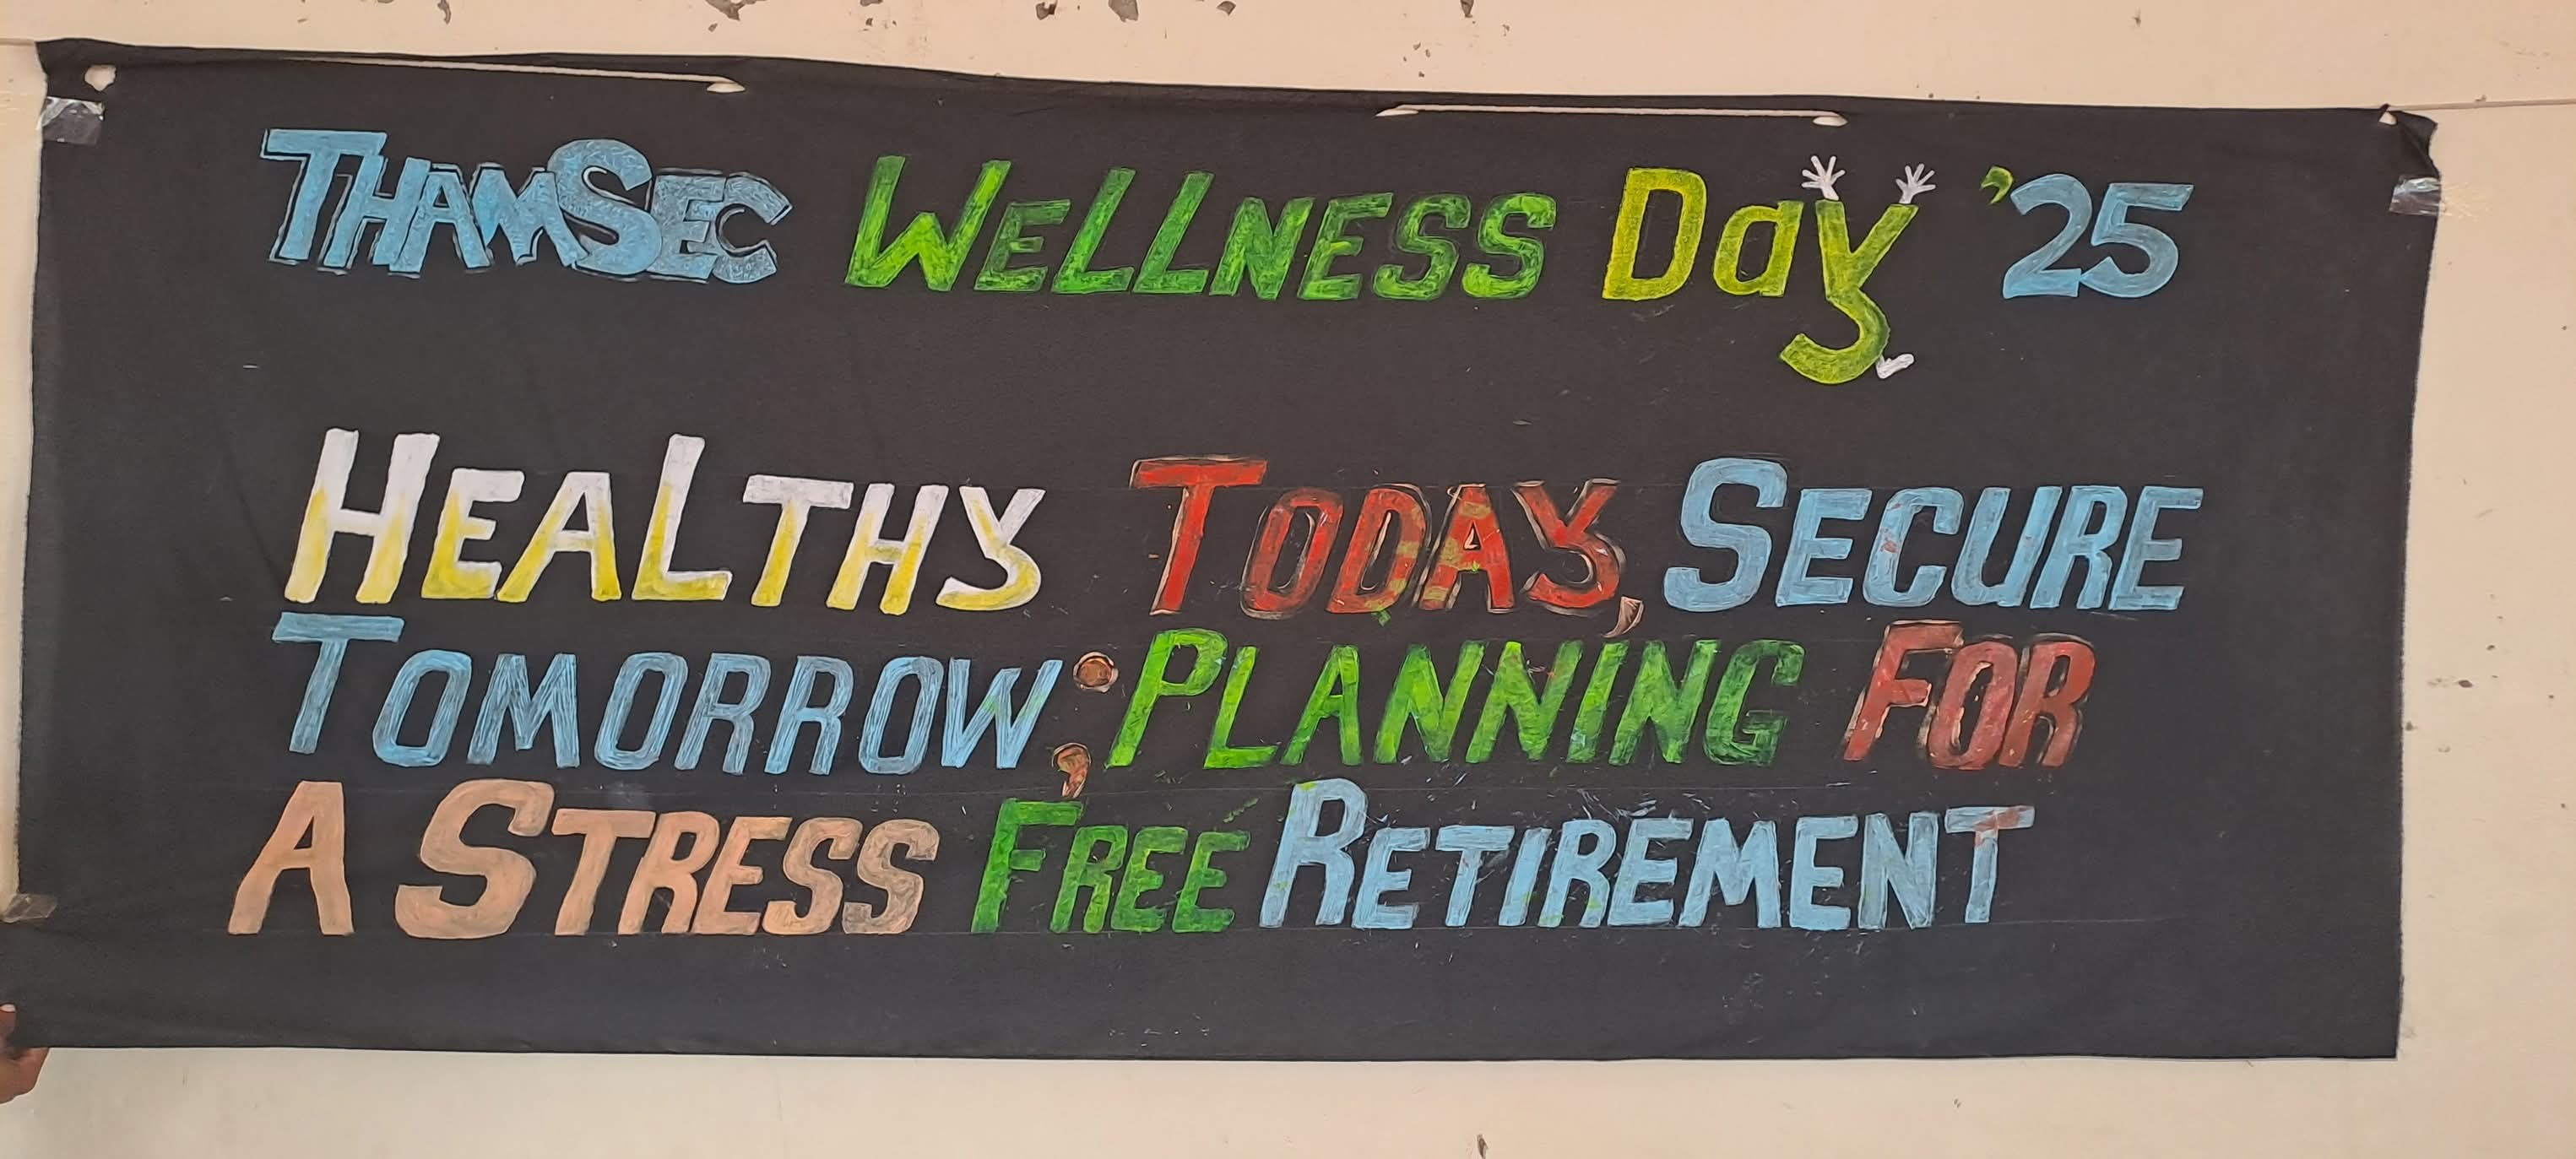 THAMSEC WELLNESS Day '25
HEALTHY TODAY, SECURE
TOMORROW; PLANNING FOR
A STRESS FREE RETIREMENT